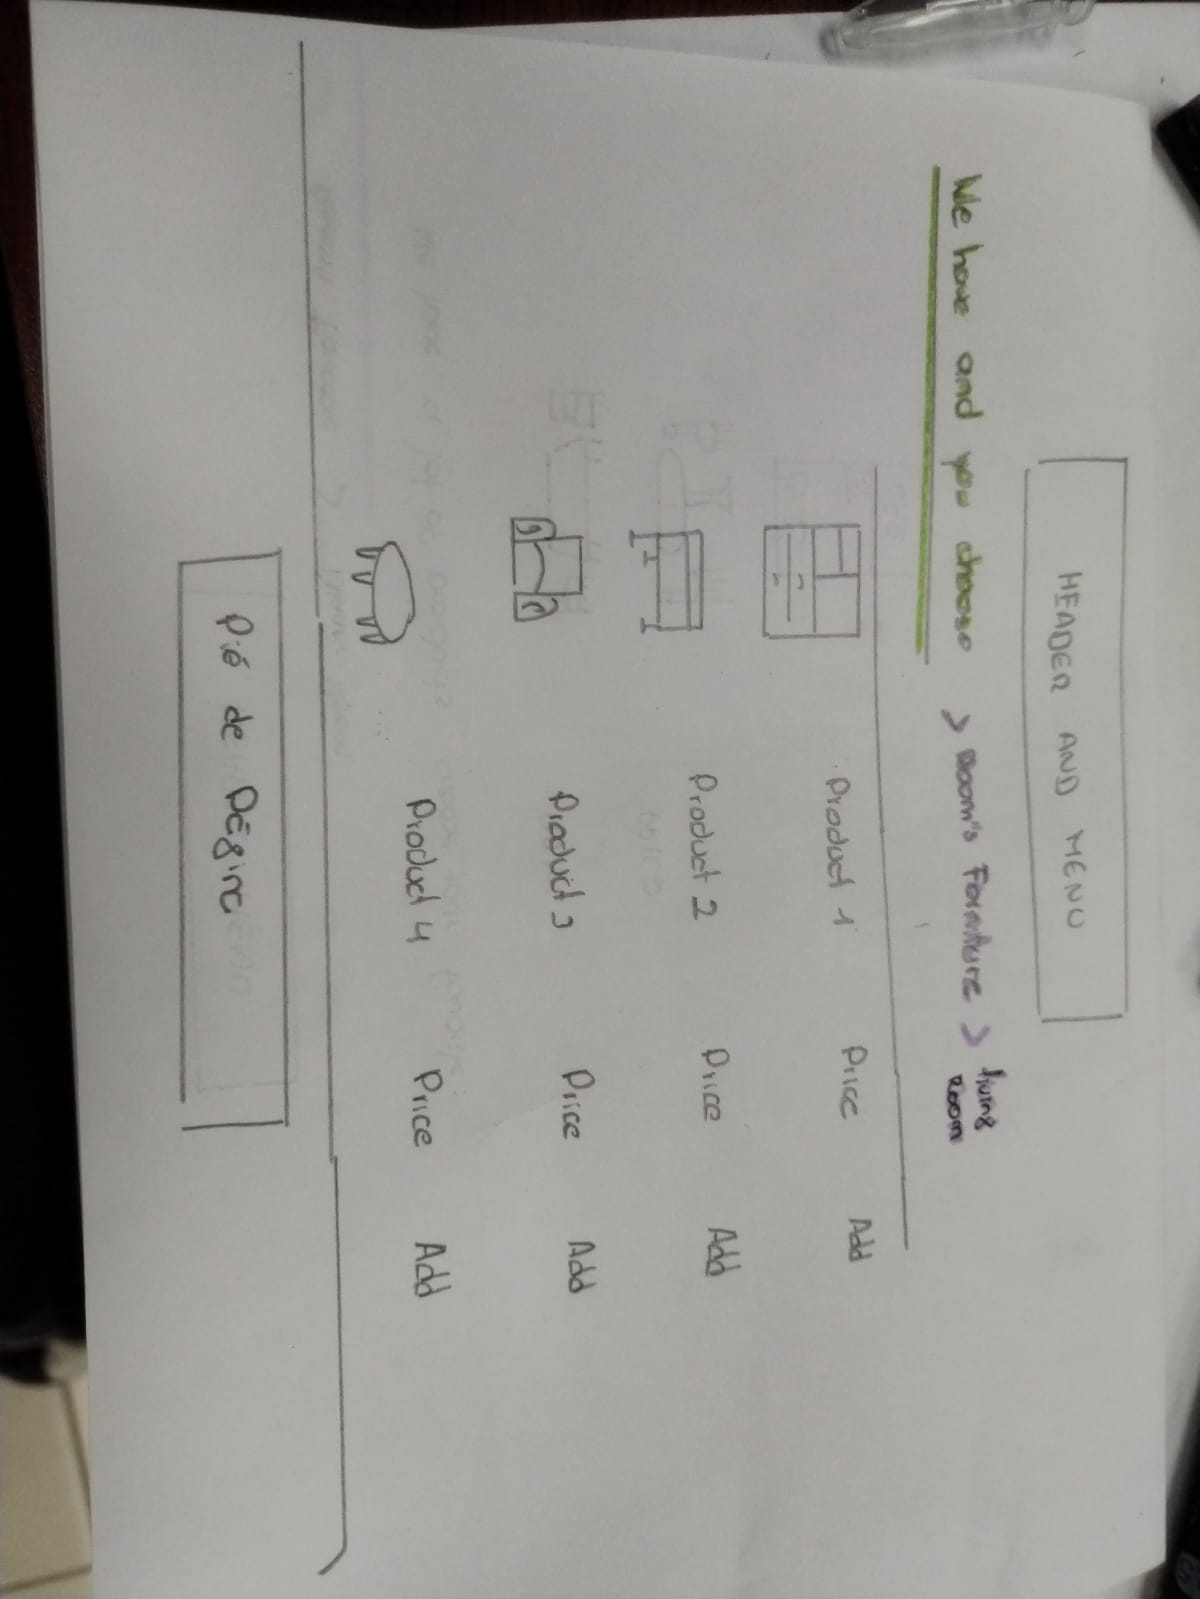 HEADER AND MENU
We have and you choose > Room's Foraiture > living Room
Product 1 Price Add
Product 2 Price Add
Product 3 Price Add
Product 4 Price Add
Pié de Página